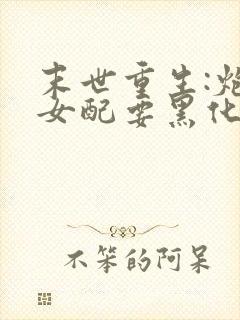 末世重生:炮
女配要黑化
不笨的阿呆